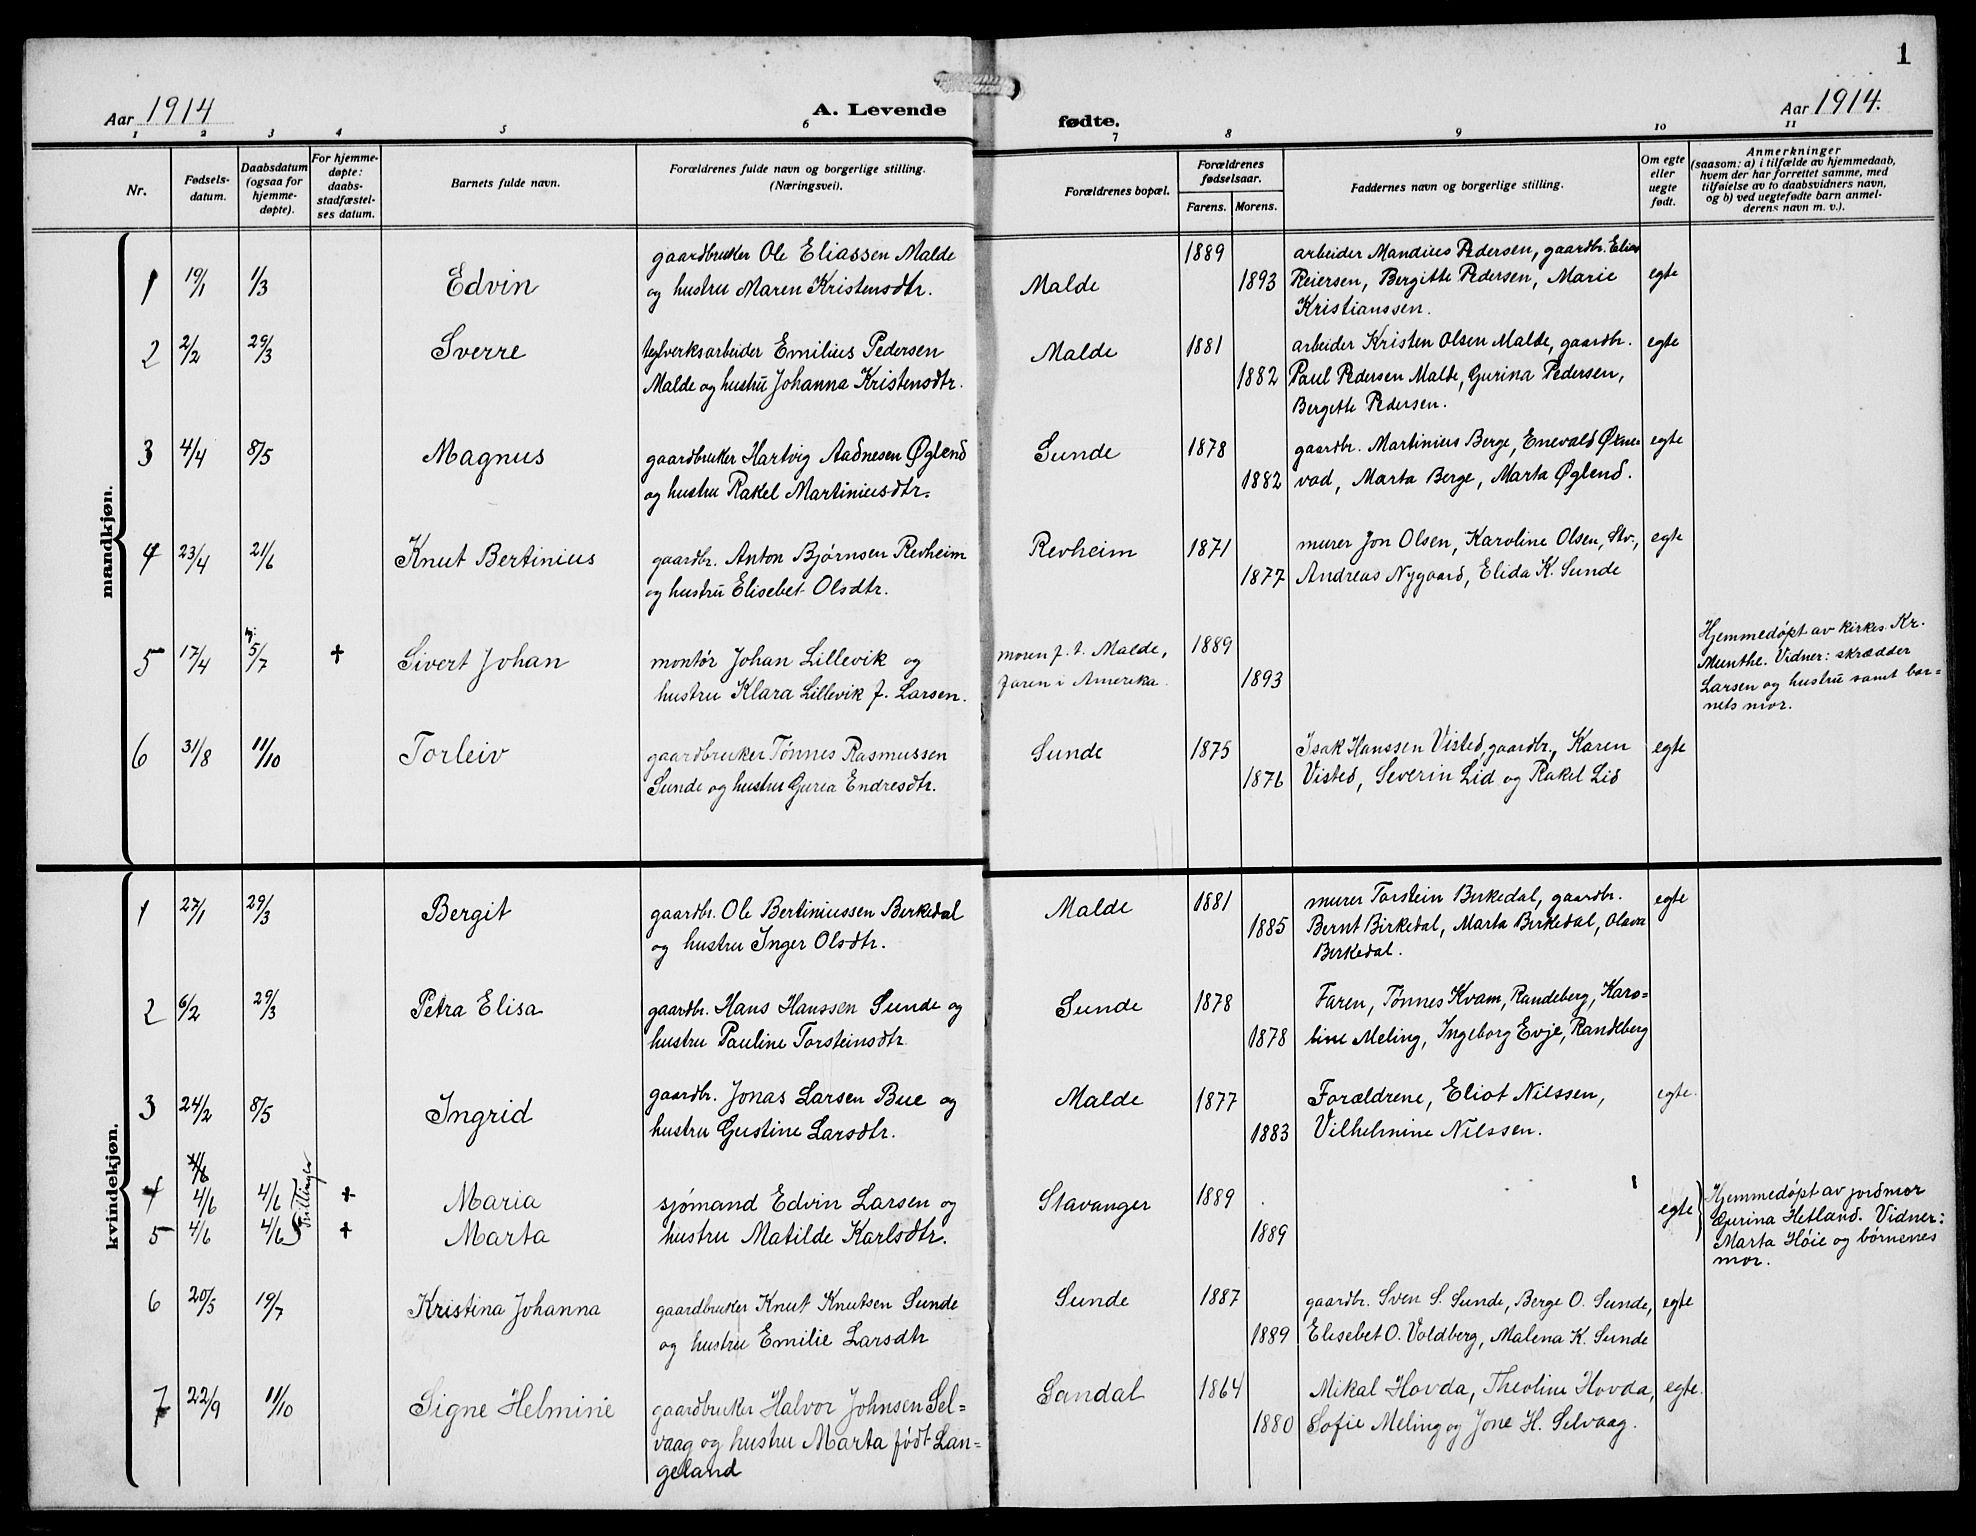 1
Aar 1914
A. Levende fødte.
Aar 1914.
1 2 3 4 5 6 7 8 9 10 11
Nr.
Fødsels-
datum.
Daabsdatum
(ogsaa for
hjemme-
døpte).
For hjemme-
døpte:
daabs-
stadfæstel-
ses datum.
Barnets fulde navn.
Forældrenes fulde navn og borgerlige stilling.
(Næringsvei).
Forældrenes bopæl.
Forældrenes
fødselsaar.
Farens. Morens.
Faddernes navn og borgerlige stilling.
Om egte
eller
uegte
født.
Anmerkninger
(saasom: a) i tilfælde av hjemmedaab,
hvem der har forrettet samme, med
tilføielse av to daabsvidners navn,
og b) ved uegtefødte barn anmel-
derens navn m. v.).
mandkjøn.
1 19/1 1/3 Edvin
gaardbruker Ole Eliassen Malde
og hustru Maren Kristensdtr.
Malde 1889 1893
arbeider Mandius Pedersen, gaardbr. Elias
Reiersen, Bergitte Pedersen, Marie
Kristianssen.
egte
2 2/2 29/3 Sverre
teglverksarbeider Emilius Pedersen
Malde og hustru Johanna Kristensdtr.
Malde 1881 1882
arbeider Kristen Olsen Malde, gaardbr.
Paul Pedersen Malde, Gurina Pedersen,
Bergitte Pedersen.
egte
3 4/4 8/5 Magnus
gaardbruker Hartvig Aadnesen Øglend
og hustru Rakel Martiniusdtr.
Sunde 1878 1882
gaardbr. Martinius Berge, Enevald Øxne
vad, Marta Berge, Marta Øglend.
egte
4 23/4 21/6 Knut Bertinius
gaardbr. Anton Bjørnsen Revheim
og hustru Elisebet Olsdtr.
Revheim 1871 1877
murer Jon Olsen, Karoline Olsen, Stv.,
Andreas Nygaard, Elida K. Sunde
egte
5 17/4 5/7 † Sivert Johan
montør Johan Lillevik og
hustru Klara Lillevik f. Larsen.
moren f. t. Malde,
faren i Amerika.
1889 1893
Hjemmedøpt av kirkes. Kr.
Munthe. Vidner: skrædder
Larsen og hustru samt bar=
nets mor.
6 31/8 11/10 Torleiv
gaardbruker Tønnes Rasmussen
Sunde og hustru Guria Endresdtr.
Sunde 1875 1876
Isak Hanssen Visted, gaardbr., Karen
Visted, Severin Lid og Rakel Lid
egte
kvindekjøn.
1 27/1 29/3 Bergit
gaardbr. Ole Bertiniussen Berkedal
og hustru Inger Olsdtr.
Malde 1881 1885
murer Torstein Birkedal, gaardbr.
Bernt Birkedal, Marta Birkedal, Olava
Berkedal.
egte
2 6/2 29/3 Petra Elisa
gaardbr. Hans Hanssen Sunde og
hustru Pauline Torsteinsdtr
Sunde 1878 1878
Faren, Tønnes Kvam, Randeberg, Karo=
line Meling, Ingeborg Evje, Randeberg
3 24/2 8/5 Ingrid
gaardbr. Jonas Larsen Bue og
hustru Gustine Larsdtr.
Malde 1877 1883
Forældrene, Eliot Nilssen,
Vilhelmine Nilssen.
egte.
4 4/6 4/6 † Maria
5 4/6 4/6 † Marta
Tvillinger
sjømand Edvin Larsen og
hustru Matilde Karlsdtr.
Stavanger 1889 1889
egte
Hjemmedøpt av jordmor
Gurina Hetland. Vidner:
Marta Høie og børnenes
mor.
6 20/5 19/7 Kristina Johanna
gaardbruker Knut Knutsen Sunde
og hustru Emilie Larsdtr
Sunde 1887 1889
gaardbr. Sven S. Sunde, Berge O. Sunde,
Elisebet O. Voldberg, Malena K. Sunde
egte
7 22/9 11/10 Signe Helmine
gaardbruker Halvor Johnsen Sel=
vaag og hustru Marta født Lan=
geland
Sandal 1864 1880
Mikal Hovda, Theoline Hovda,
Sofie Meling og Jone H. Selvaag.
egte.